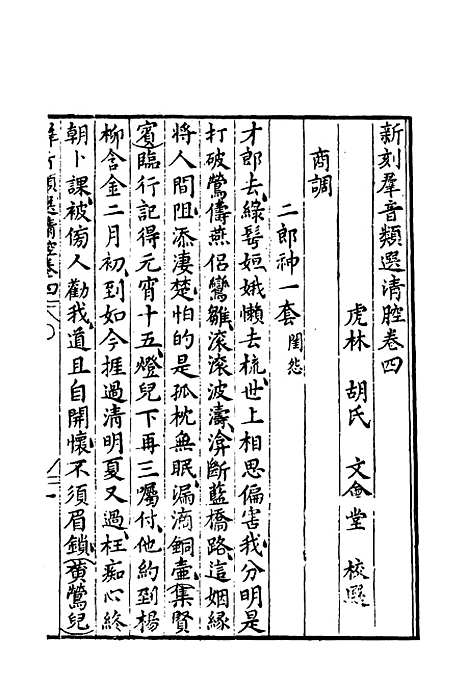 新刻羣音類選清腔卷四
虎林 胡氏 文會堂 校
商調
二郎神一套 閨怨
才郎去綠鬂姮娥懶去梳世上相思偏害我分明是
打破鶯儔燕侶鸞雛滚滚波濤渰斷藍橋路這姻緣
將人間阻添淒楚怕的是孤枕無眠漏滴銅壺集賢
賓臨行記得元宵十五燈兒下再三囑付他約到楊
柳含金二月初到如今捱過清明夏又過枉痴心終
朝卜課被傍人勸我道且自開懷不須眉鎖黃鶯兒
類選清腔卷四